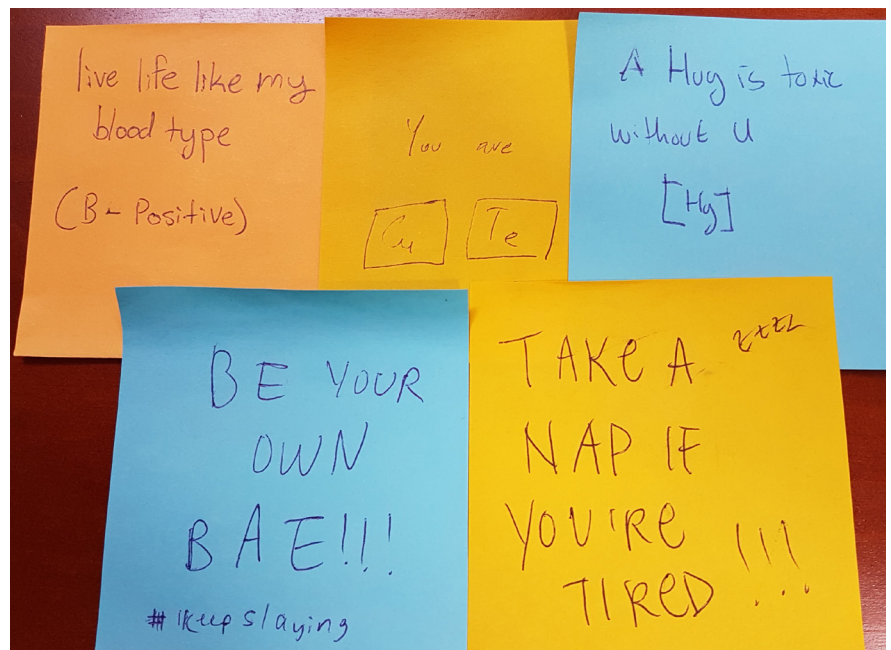 live life like my
blood type
(B- Positive)
You are
Cu Te
A Hug is toxic
without U
[Hg]
BE YOUR
OWN
BAE!!!
#keepslaying
TAKE A zzzz
NAP IF
YOU'RE
TIRED !!!